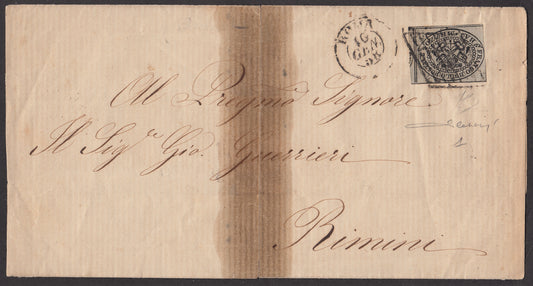 ROMA
16
GEN
58
Al Pregmo Signore
Il Sigre Gio. Guerrieri
Rimini